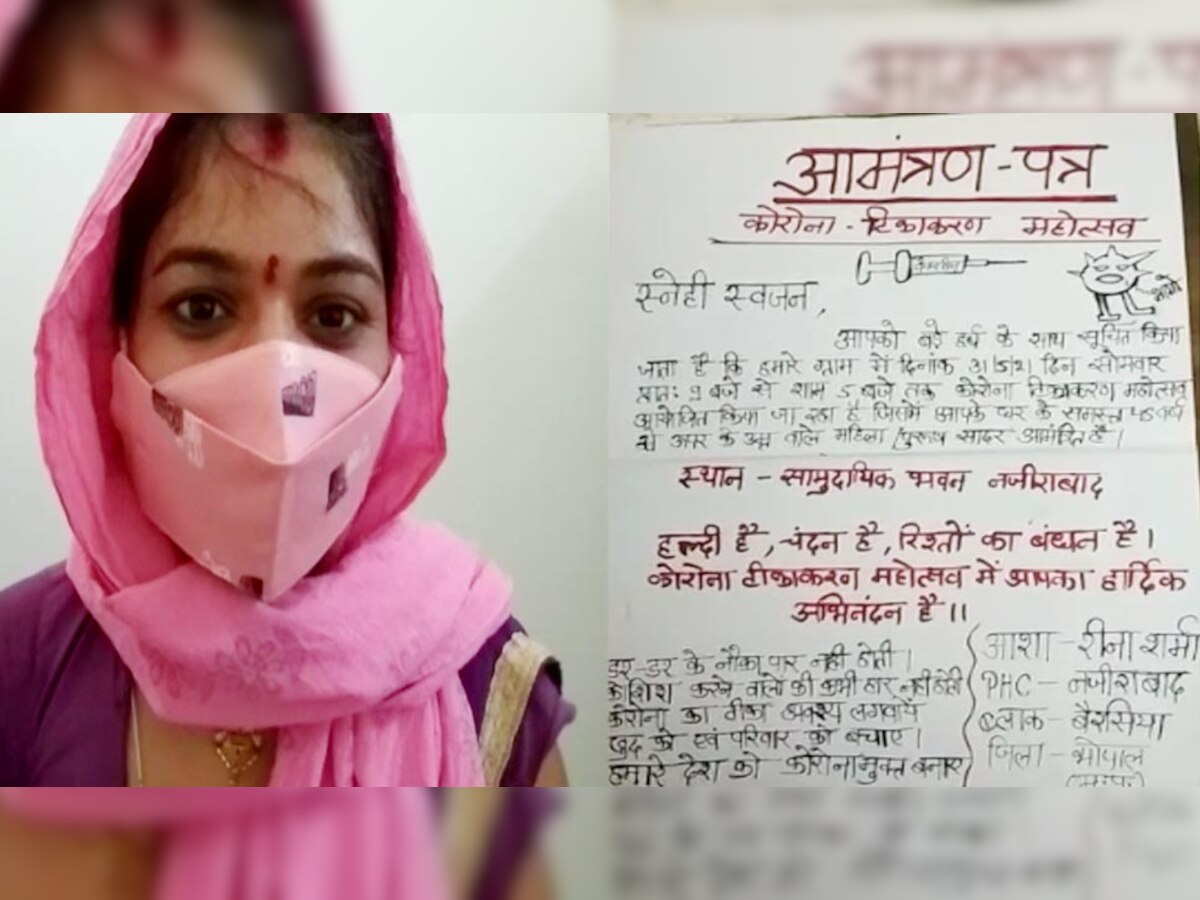 आमंत्रण-पत्र
कोरोना - टिकाकरण महोत्सव
स्नेही स्वजन,
आपको बड़े हर्ष के साथ सूचित किया
जाता है कि हमारे ग्राम में दिनांक 31/5/21 दिन सोमवार
प्रातः 9 बजे से शाम 5 बजे तक कोरोना टिकाकरण महोत्सव
आयोजित किया जा रहा है जिसमें आपके घर के समस्त वर्ष
से ऊपर के उम्र वाले महिला/पुरूष सादर आमंत्रित है।
स्थान - सामुदायिक भवन नजीराबाद
हल्दी है, चंदन है, रिश्तों का बंधन है।
कोरोना टीकाकरण महोत्सव में आपका हार्दिक
अभिनंदन है।।
डर-डर के नौका पार नही होती।
कोशिश करने वालो की कभी हार नही होती
कोरोना का टीका अवश्य लगवाये
खुद को एवं परिवार को बचाए।
हमारे देश को कोरोनामुक्त बनाए
आशा - रीना शर्मा
PHC - नजीराबाद
ब्लाक - बैरसिया
जिला - भोपाल